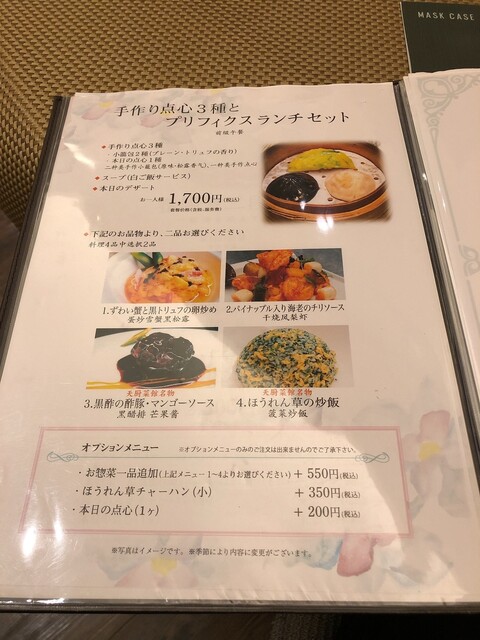 MASK CASE
手作り点心3種と
プリフィクスランチセット
◆手作り点心3種
・小籠包2種(プレーン・トリュフの香り)
・本日の点心1種
二种美手作小籠包(原味・松露香气)、一种美手作点心
◆スープ(白ご飯サービス)
◆本日のデザート
お一人様 1,700円(税込)
◆下記のお品物より、二品お選びください
料理4品中选択2品
1.ずわい蟹と黒トリュフの卵炒め
蛋炒雪蟹黑松露
2.パイナップル入り海老のチリソース
干烧凤梨虾
天厨菜館名物
3.黒酢の酢豚・マンゴーソース
黑醋排 芒果酱
天厨菜館名物
4.ほうれん草の炒飯
菠菜炒飯
オプションメニュー ※オプションメニューのみのご注文は出来ませんのでご了承下さい。
・お惣菜一品追加(上記メニュー1~4よりお選びください) + 550円(税込)
・ほうれん草チャーハン(小) + 350円(税込)
・本日の点心(1ヶ) + 200円(税込)
※写真はイメージです。 ※季節により内容に変更がございます。